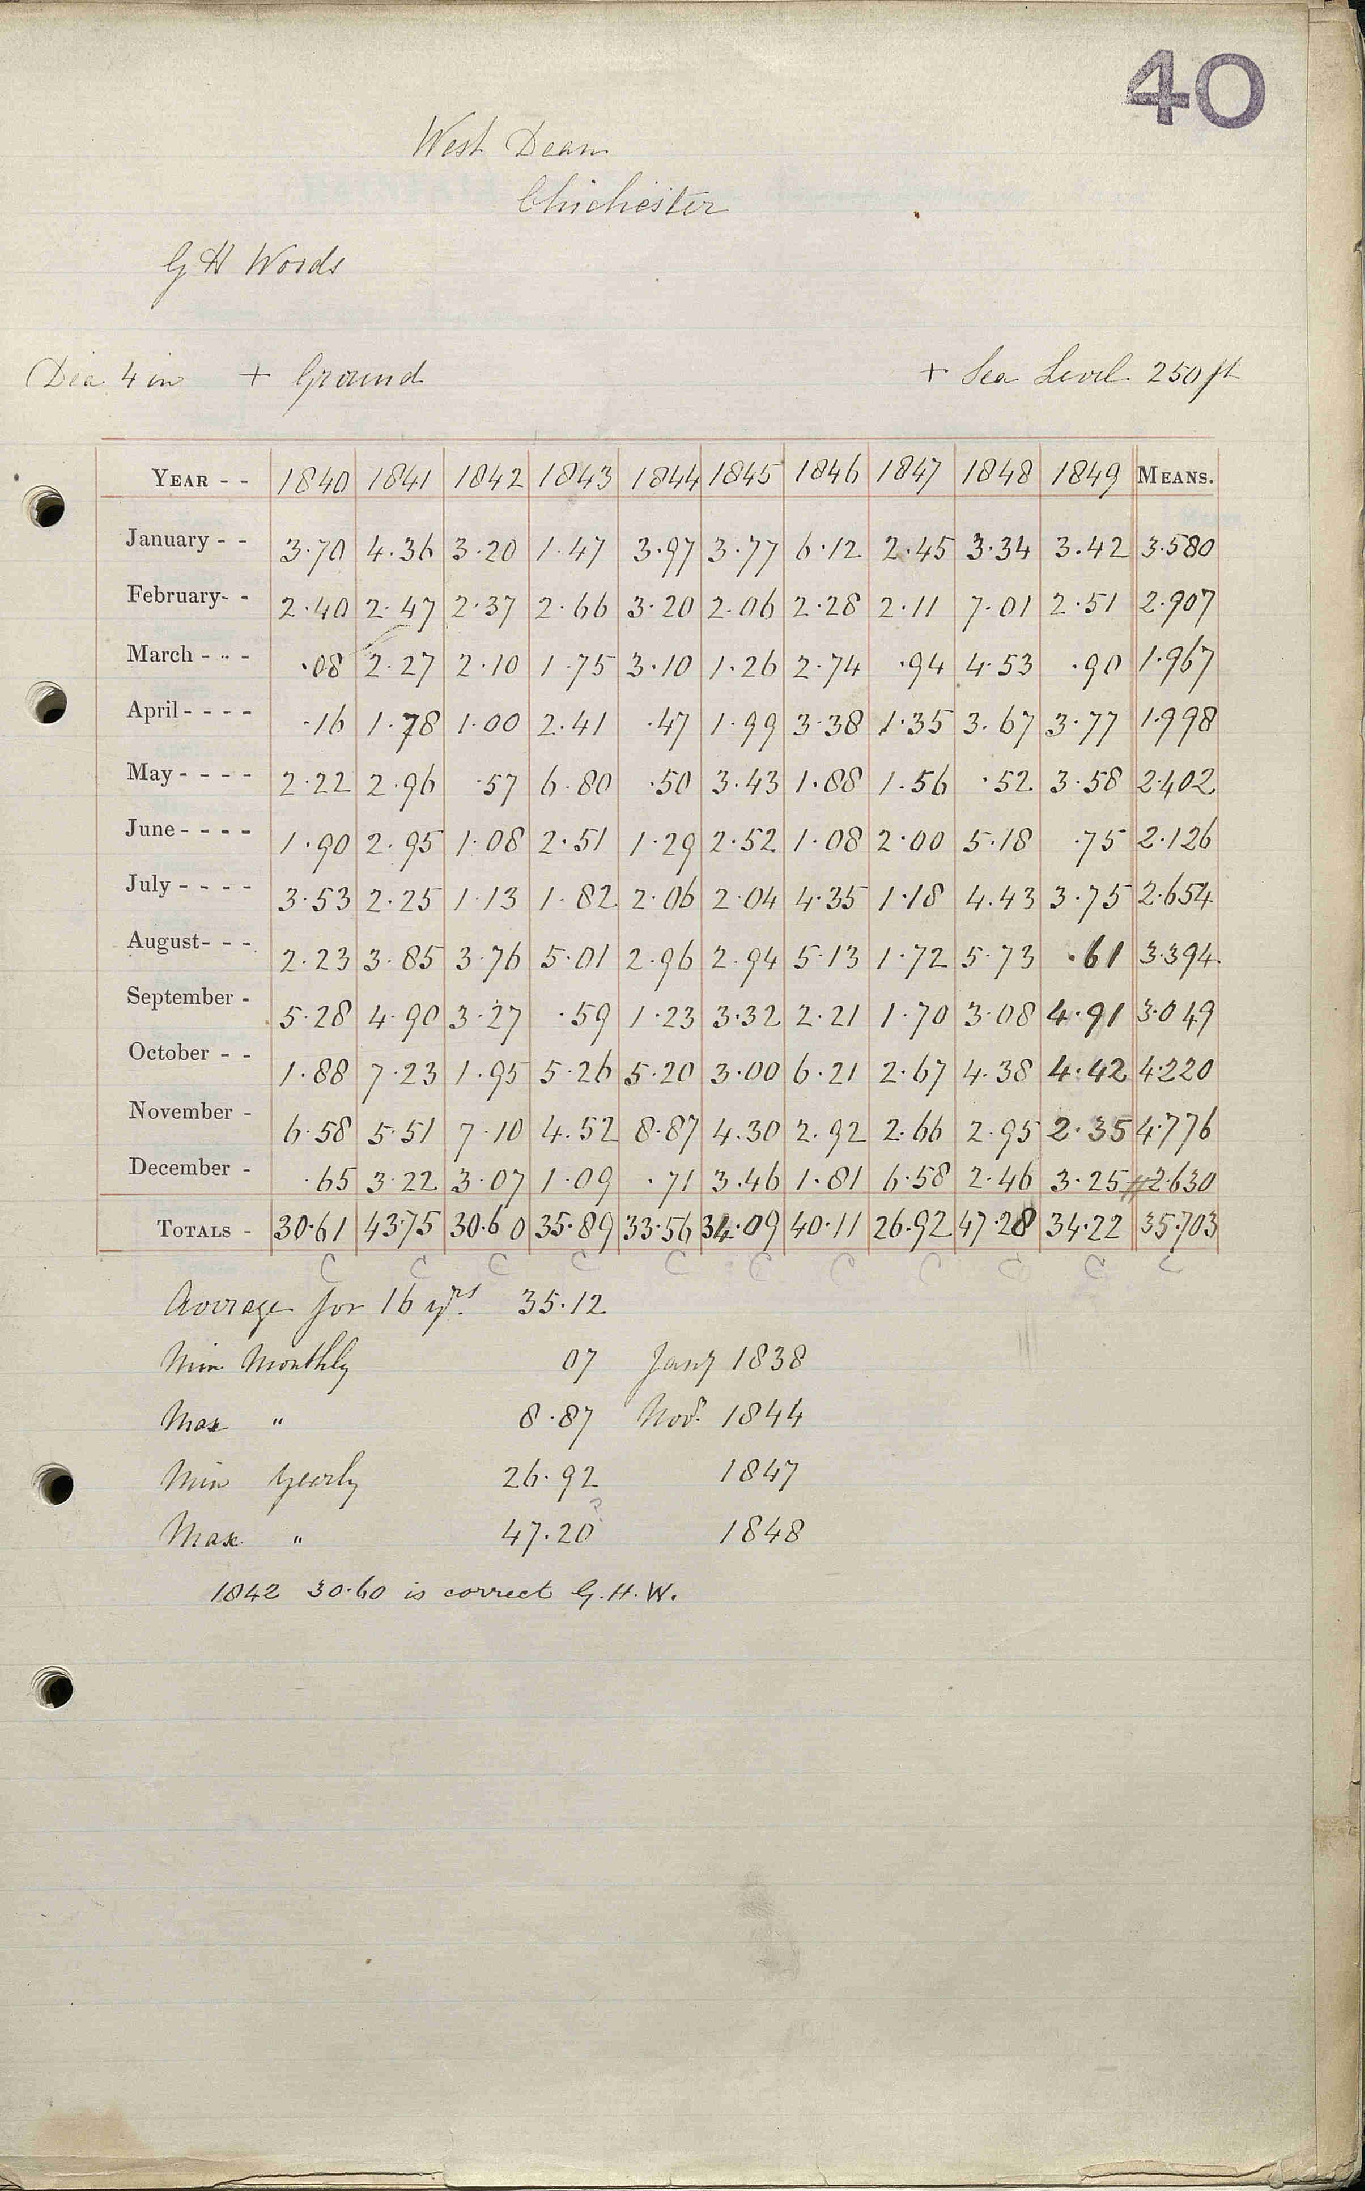 40
West Dean
Chichester
G H Woods
Dia 4 in + Ground + Sea Level 250 ft
YEAR - - 1840 1841 1842 1843 1844 1845 1846 1847 1848 1849 MEANS.
January - - 3.70 4.36 3.20 1.47 3.97 3.77 6.12 2.45 3.34 3.42 3.580
February- - 2.40 2.47 2.37 2.66 3.20 2.06 2.28 2.11 7.01 2.51 2.907
March - - - .08 2.27 2.10 1.75 3.10 1.26 2.74 .94 4.53 .90 1.967
April - - - - .16 1.78 1.00 2.41 .47 1.99 3.38 1.35 3.67 3.77 1.998
May - - - - 2.22 2.96 .57 6.80 .50 3.43 1.88 1.56 .52 3.58 2.402
June - - - - 1.90 2.95 1.08 2.51 1.29 2.52 1.08 2.00 5.18 .75 2.126
July - - - - 3.53 2.25 1.13 1.82 2.06 2.04 4.35 1.18 4.43 3.75 2.654
August- - - 2.23 3.85 3.76 5.01 2.96 2.94 5.13 1.72 5.73 .61 3.394
September - 5.28 4.90 3.27 .59 1.23 3.32 2.21 1.70 3.08 4.91 3.049
October - - 1.88 7.23 1.95 5.26 5.20 3.00 6.21 2.67 4.38 4.42 4.220
November - 6.58 5.51 7.10 4.52 8.87 4.30 2.92 2.66 2.95 2.35 4.776
December - .65 3.22 3.07 1.09 .71 3.46 1.81 6.58 2.46 3.25 2.630
TOTALS - 30.61 43.75 30.60 35.89 33.56 34.09 40.11 26.92 47.28 34.22 35.703
C C C C C C C C C C C
Average for 16 yrs. 35.12
Min Monthly 07 Jany 1838
Max " 8.87 Novr. 1844
Min Yearly 26.92 1847
?
Max " 47.20 1848
1842 30.60 is correct G.H.W.